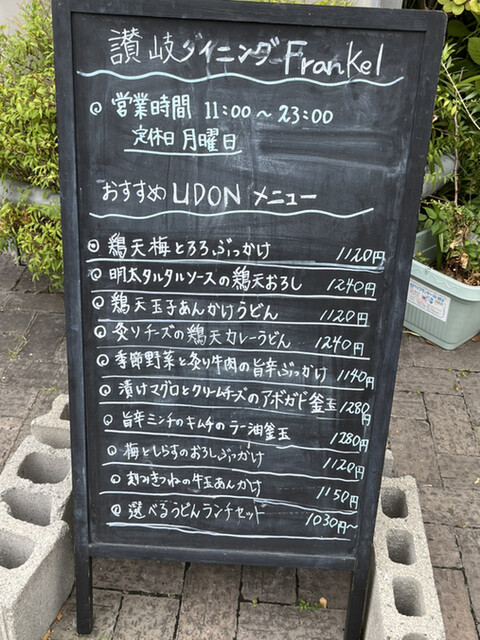 讃岐ダイニングFrankel
営業時間 11:00～23:00
定休日 月曜日
おすすめ UDON メニュー
鶏天梅とろろぶっかけ 1120円
明太タルタルソースの鶏天おろし 1240円
鶏天玉子あんかけうどん 1120円
炙りチーズの鶏天カレーうどん 1240円
季節野菜と炙り牛肉の旨辛ぶっかけ 1140円
漬けマグロとクリームチーズのアボガド釜玉 1280円
旨辛ミンチのキムチのラー油釜玉 1280円
梅としらすのおろしぶっかけ 1120円
刻みきつねの牛玉あんかけ 1150円
選べるうどんランチセット 1030円～